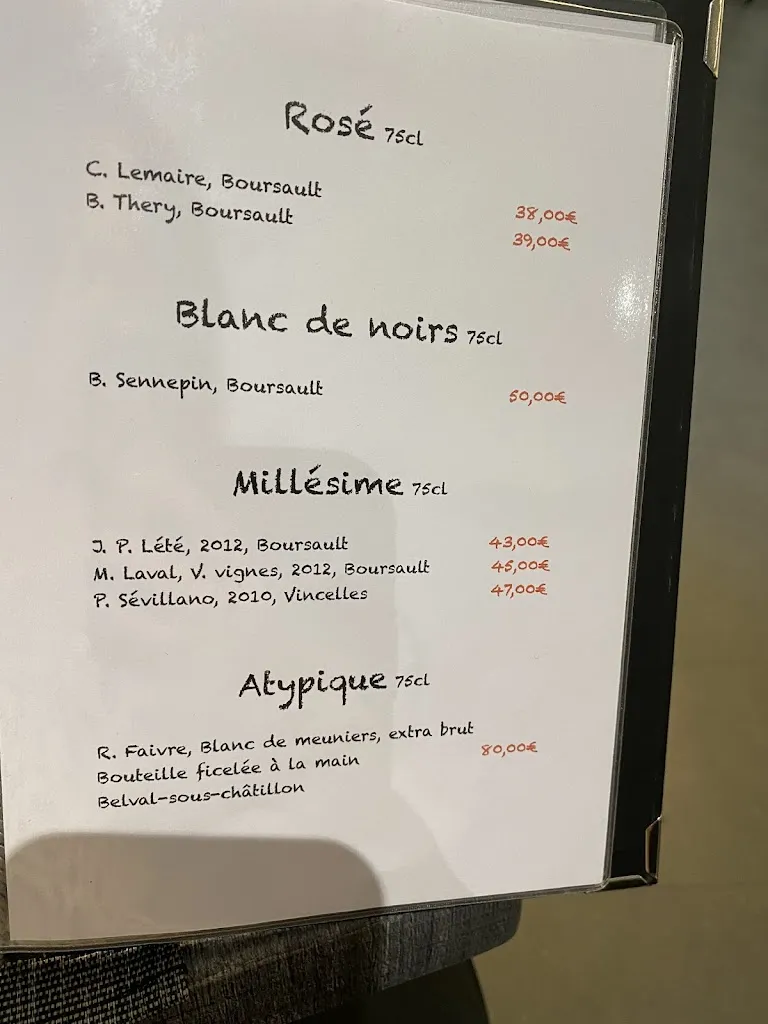 Rosé 75cl
C. Lemaire, Boursault 38,00€
B. Thery, Boursault 39,00€
Blanc de noirs 75cl
B. Sennepin, Boursault 50,00€
Millésime 75cl
J. P. Lété, 2012, Boursault 43,00€
M. Laval, V. vignes, 2012, Boursault 45,00€
P. Sévillano, 2010, Vincelles 47,00€
Atypique 75cl
R. Faivre, Blanc de meuniers, extra brut 80,00€
Bouteille ficelée à la main
Belval-sous-châtillon